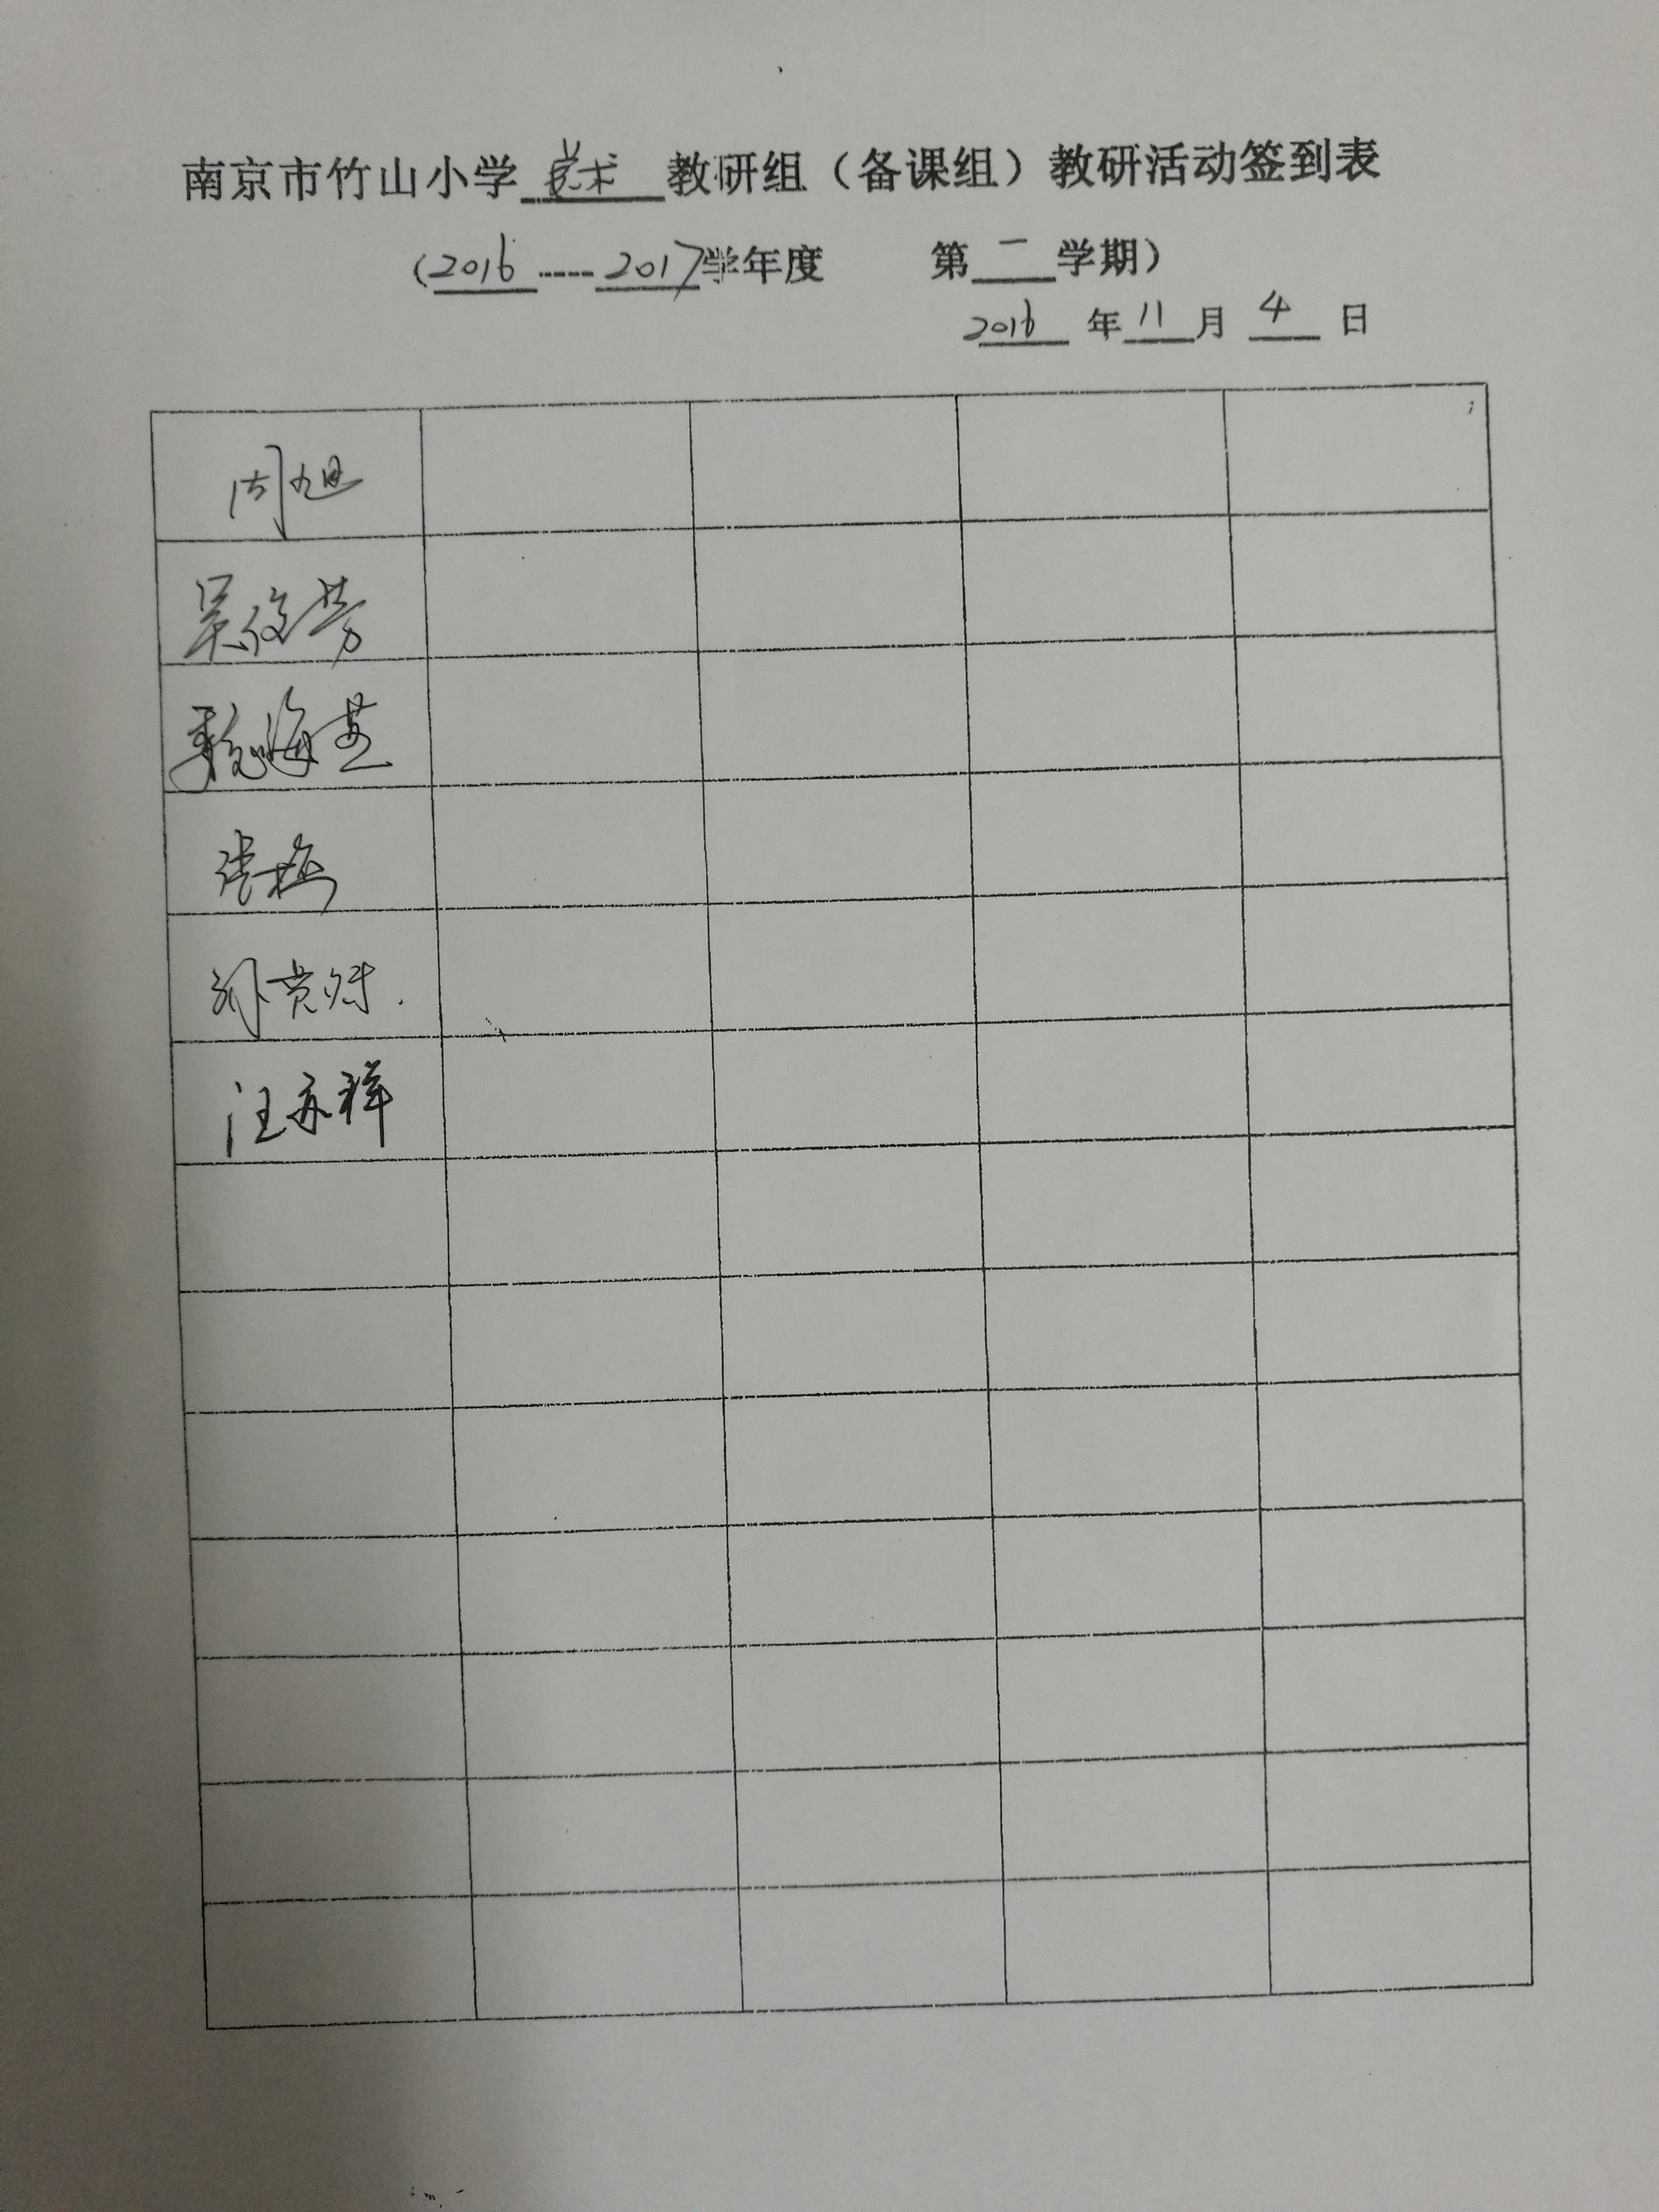 南京市竹山小学艺术教研组（备课组）教研活动签到表
（2016-----2017学年度 第一学期）
2016年11月4日
周旭
吴俊芳
海燕
张梅
孙贵财.
汪亦祥